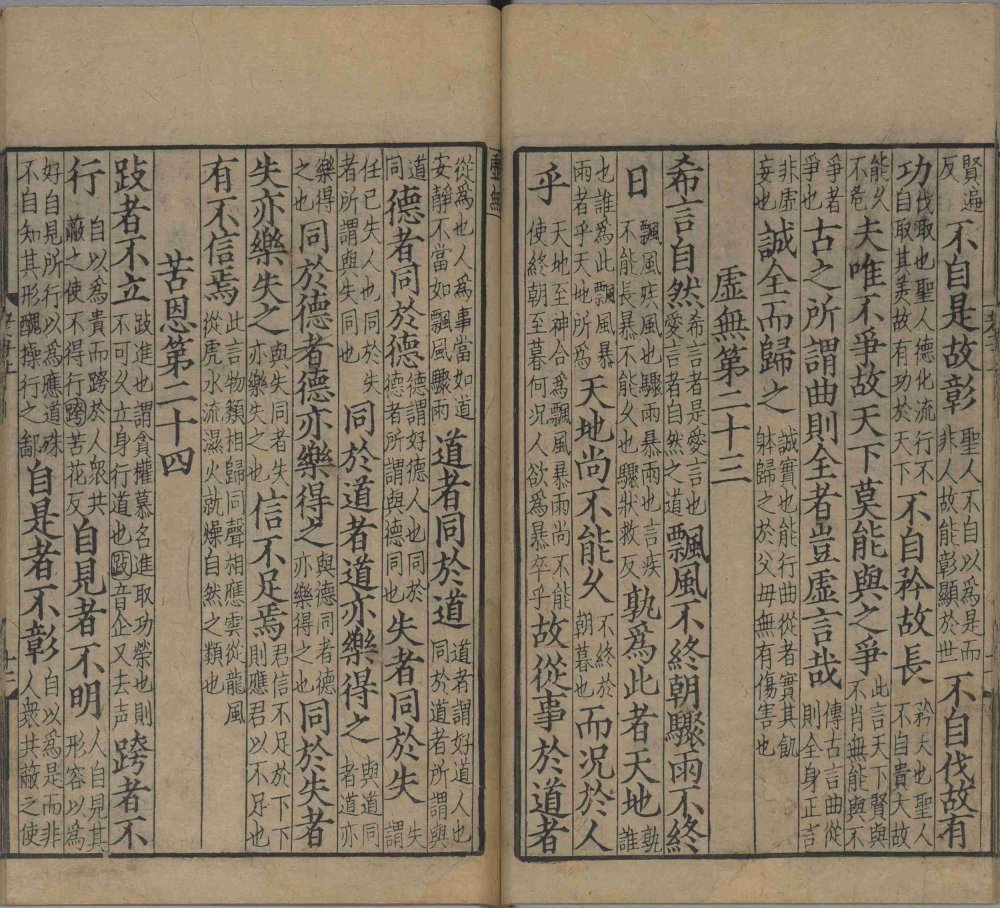 賢遍反不自是故彰聖人不自以爲是而非人故能彰顯於世不自伐故有
功伐取也聖人德化流行不自取其美故有功於天下不自矜故長矜大也聖人不自貴大故
能久不危夫唯不爭故天下莫能與之爭此言天下賢與不肖無能與不
爭者爭也古之所謂曲則全者豈虛言哉傳古言曲從則全身正言
非虛妄也誠全而歸之誠實也能行曲從者實其飢躰歸之於父母無有傷害也
虛無第二十三
希言自然希言者是愛言也愛言者自然之道飄風不終朝驟雨不終
日飄風疾風也驟雨暴雨也言疾不能長暴不能久也驟狀救反孰爲此者天地孰誰
也誰爲此飄風暴雨者乎天地所爲天地尚不能久不終於朝暮也而況於人
乎天地至神合爲飄風暴雨尚不能使終朝至暮何況人欲爲暴卒乎故從事於道者
虛無
從爲也人爲事當如道安靜不當如飄風驟雨道者同於道道者謂好道人也同於道者所謂與
道同德者同於德德謂好德人也同於德者所謂與德同也失者同於失失謂
任己失人也同於失者所謂與失同也同於道者道亦樂得之與道同者道亦
樂得之也同於德者德亦樂得之與德同者德亦樂得之也同於失者
失亦樂失之與失同者失亦樂失之也信不足焉君信不足於下下則應君以不足也
有不信焉此言物類相歸同聲相應雲從龍風從虎水流濕火就燥自然之類也
苦恩第二十四
跂者不立跂進也謂貪權慕名進取功榮也則不可久立身行道也跂音企又去声跨者不
行自以爲貴而跨於人衆共蔽之使不得行跨苦花反自見者不明人自見其形容以爲
好自見所行以爲應道殊不自知其形醜操行之鄙自是者不彰自以爲是而非人衆共蔽之使